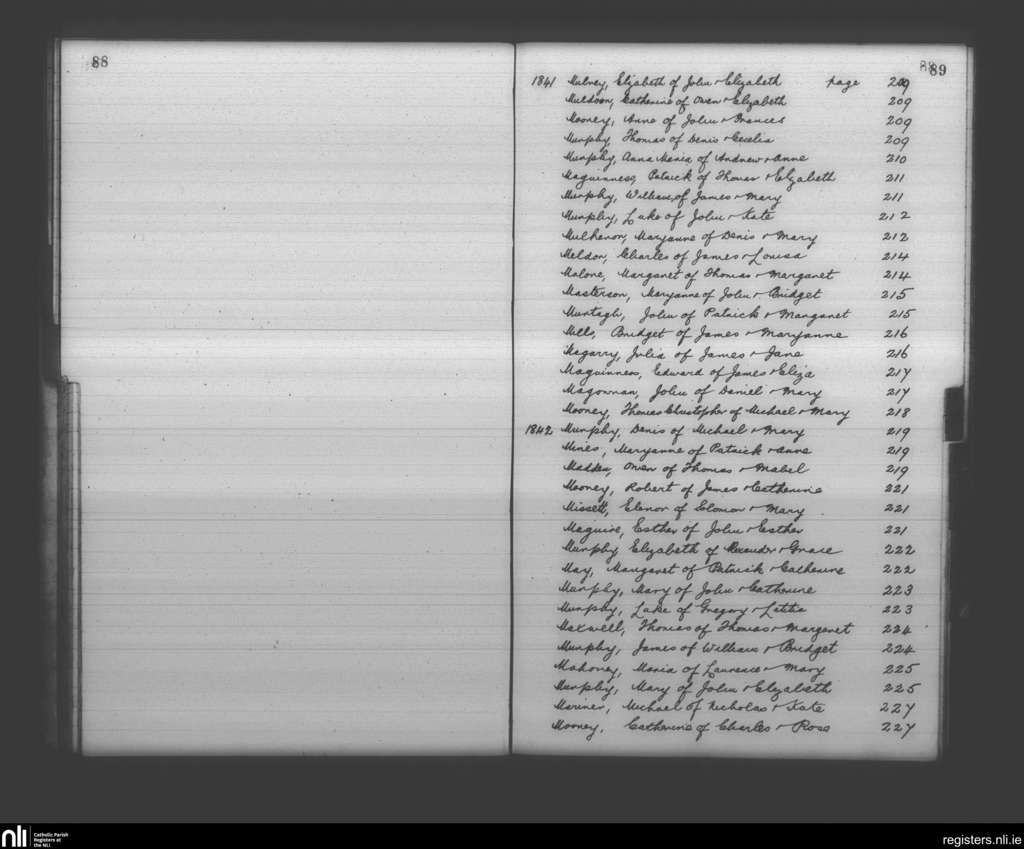 88
89
1841 Mulvey, Elizabeth of John & Elizabeth page 209
Muldoon, Catherine of Owen & Elizabeth 209
Mooney, Anne of John & Frances 209
Murphy, Thomas of Denis & Cecelia 209
Murphy, Anna Maria of Andrew & Anne 210
Maguinness, Patrick of Thomas & Elizabeth 211
Murphy, William of James & Mary 211
Murphy, Luke of John & Kate 212
Mulheron, Maryanne of Denis & Mary 212
Meldon, Charles of James & Louisa 214
Malone, Margaret of Thomas & Margaret 214
Masterson, Maryanne of John & Bridget 215
Murtagh, John of Patrick & Margaret 215
Mills, Bridget of James & Maryanne 216
Magarry, Julia of James & Jane 216
Maguinness, Edward of James & Eliza 217
Magownan, John of Daniel & Mary 217
Mooney, Thomas Christopher of Michael & Mary 218
1842 Murphy, Denis of Michael & Mary 219
Mines, Maryanne of Patrick & Anne 219
Madden, Owen of Thomas & Mabel 219
Mooney, Robert of James & Catherine 221
Missett, Elenor of Solomon & Mary 221
Maguire, Esther of John & Esther 221
Murphy Elizabeth of & Grace 222
May, Margaret of Patrick & Catherine 222
Murphy, Mary of John & Catherine 223
Murphy, Luke of Gregory & Letitia 223
Maxwell, Thomas of Thomas & Margaret 224
Murphy, James of William & Bridget 224
Mahoney, Maria of Laurence & Mary 225
Murphy, Mary of John & Elizabeth 225
Mariner, Michael of Nicholas & Kate 227
Mooney, Catherine of Charles & Rosa 227
nli
Catholic Parish
Registers at
the NLI
registers.nli.ie